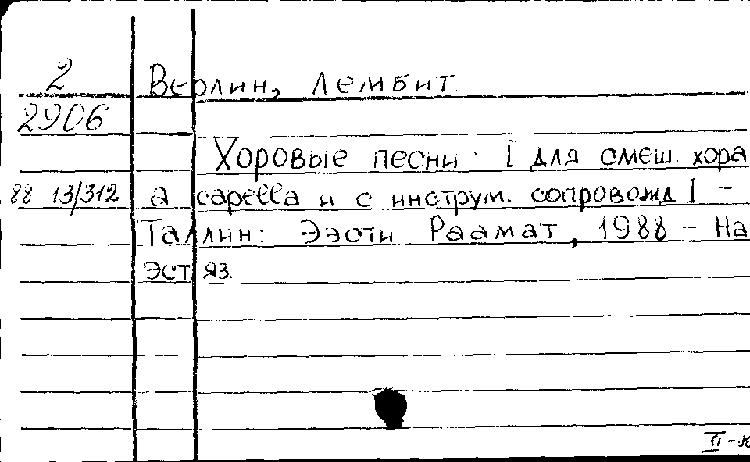 2 Верлин, Лембит
2906
Хоровые песни : [ для смеш. хора
88 13/312 a capella и с инструм. сопровожд ] -
Таллин: Ээсти Раамат, 1988 - На
эст яз.